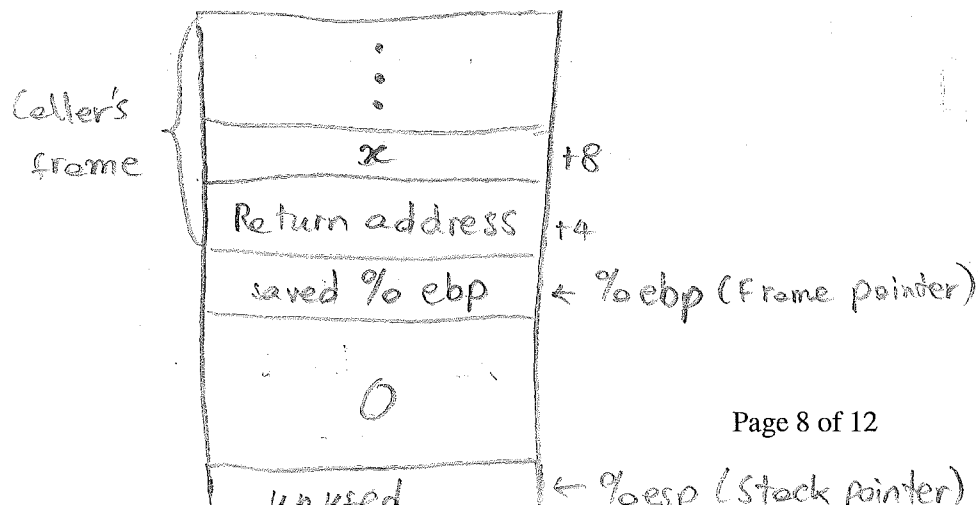 Caller's
frame
x
+8
Return address
+4
saved % ebp
← %ebp (Frame pointer)
0
Page 8 of 12
unused
← %esp (Stack pointer)